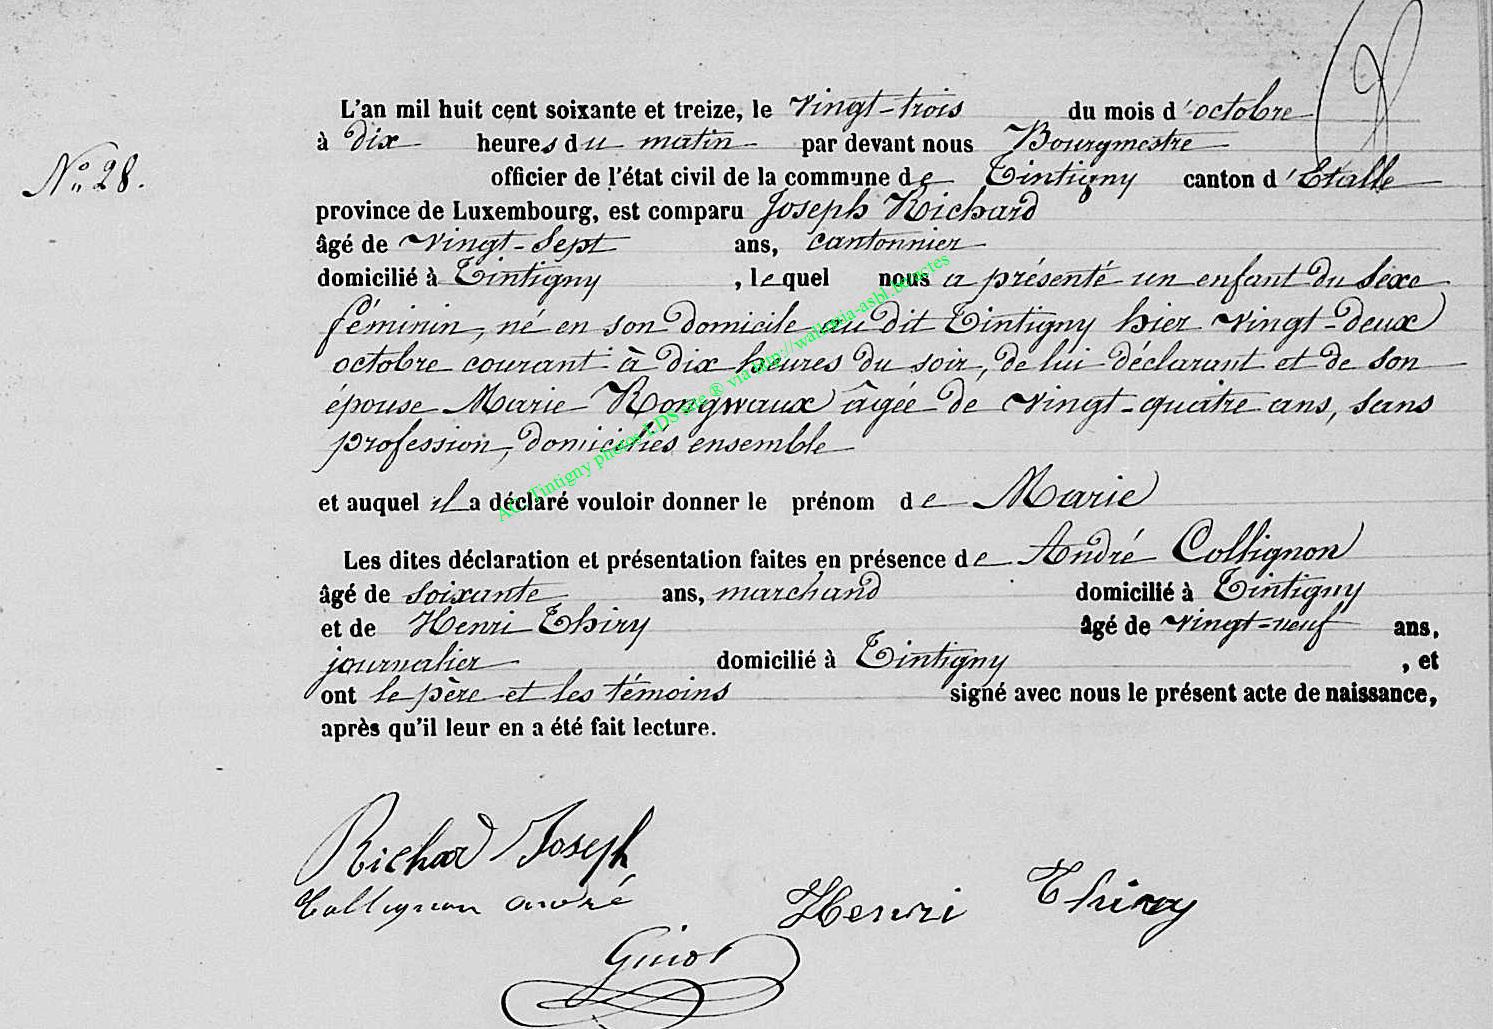 L'an mil huit cent soixante et treize, le vingt-trois du mois d'octobre
à dix heures du matin par devant nous Bourgmestre
No. 28.
officier de l'état civil de la commune de Tintigny canton d'Etalle
province de Luxembourg, est comparu Joseph Richard
âgé de vingt-sept ans, cantonnier
domicilié à Tintigny, lequel nous a présenté un enfant du sexe
féminin, né en son domicile au dit Tintigny hier vingt-deux
octobre courant à dix heures du soir, de lui déclarant et de son
épouse Marie Rongvaux âgée de vingt-quatre ans, sans
profession, domiciliés ensemble
et auquel il a déclaré vouloir donner le prénom de Marie
Les dites déclaration et présentation faites en présence de André Collignon
âgé de soixante ans, marchand domicilié à Tintigny
et de Henri Thiry âgé de vingt-neuf ans,
journalier domicilié à Tintigny, et
ont le père et les témoins signé avec nous le présent acte de naissance,
après qu'il leur en a été fait lecture.
Richard Joseph
Collignon André Henri Thiry
Guiot
AC Tintigny photos LDS site ® via http://wallonia-asbl.be/actes